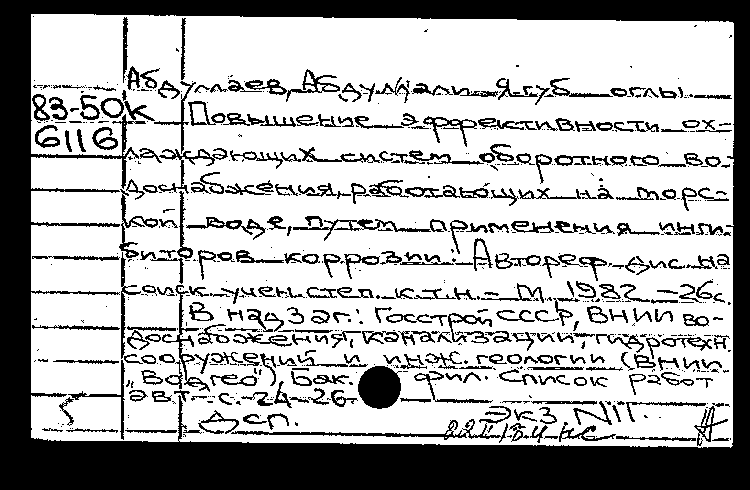 Абдуллаев, Абдулали Ягуб оглы
83-50к Повышение эффективности ох-
6116
лаждающих систем оборотного во-
доснабжения, работающих на морс-
кой воде, путем применения инги-
биторов коррозии: Автореф. дис. на
соиск. учен. степ. к.т.н. - М, 1982 - 26с.
В надзаг.: Госстрой СССР, ВНИИ во-
доснабжения, канализации, гидротехн.
сооружений и инж. геологии (ВНИИ
"Водгео"), Бак. фил. Список работ
авт. - с. 24-26
Дсп. Экз. №11.
НС